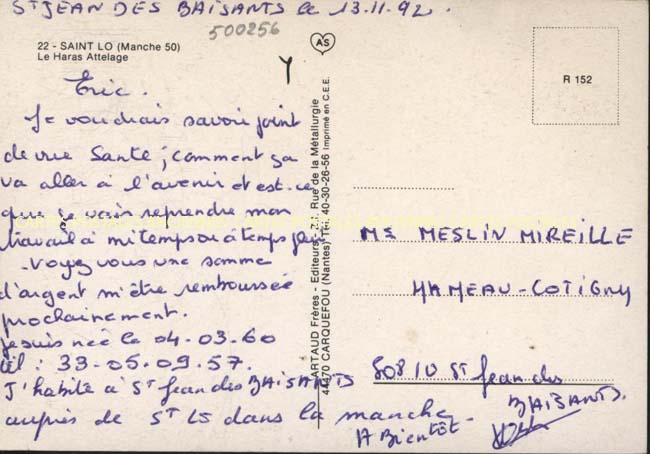 ST JEAN DES BAISANTS le 13.11.92.
500256
22 - SAINT LO (Manche 50)
Le Haras Attelage
AS
R 152
Y
Eric.
Je voudrais savoir point
de vue Santé ; comment ça
va aller à l'avenir et est-ce
que je vais reprendre mon
travail à mi temps ou à temps
- Voyez vous une somme
d'argent m'être remboursée
prochainement.
je suis née le 04-03-60
tél : 33-05-09-57.
J'habite à ST Jean des BAISANTS
auprès de ST LO dans la manche
A Bientôt.
ARTAUD Frères - Editeurs - Z.I. Rue de la Métallurgie
44470 CARQUEFOU (Nantes) Tél. 40-30-26-56 Imprimé en C.E.E.
Me MESLIN MIREILLE
HAMEAU-COTIGNY
50810 ST Jean des
BAISANTS.